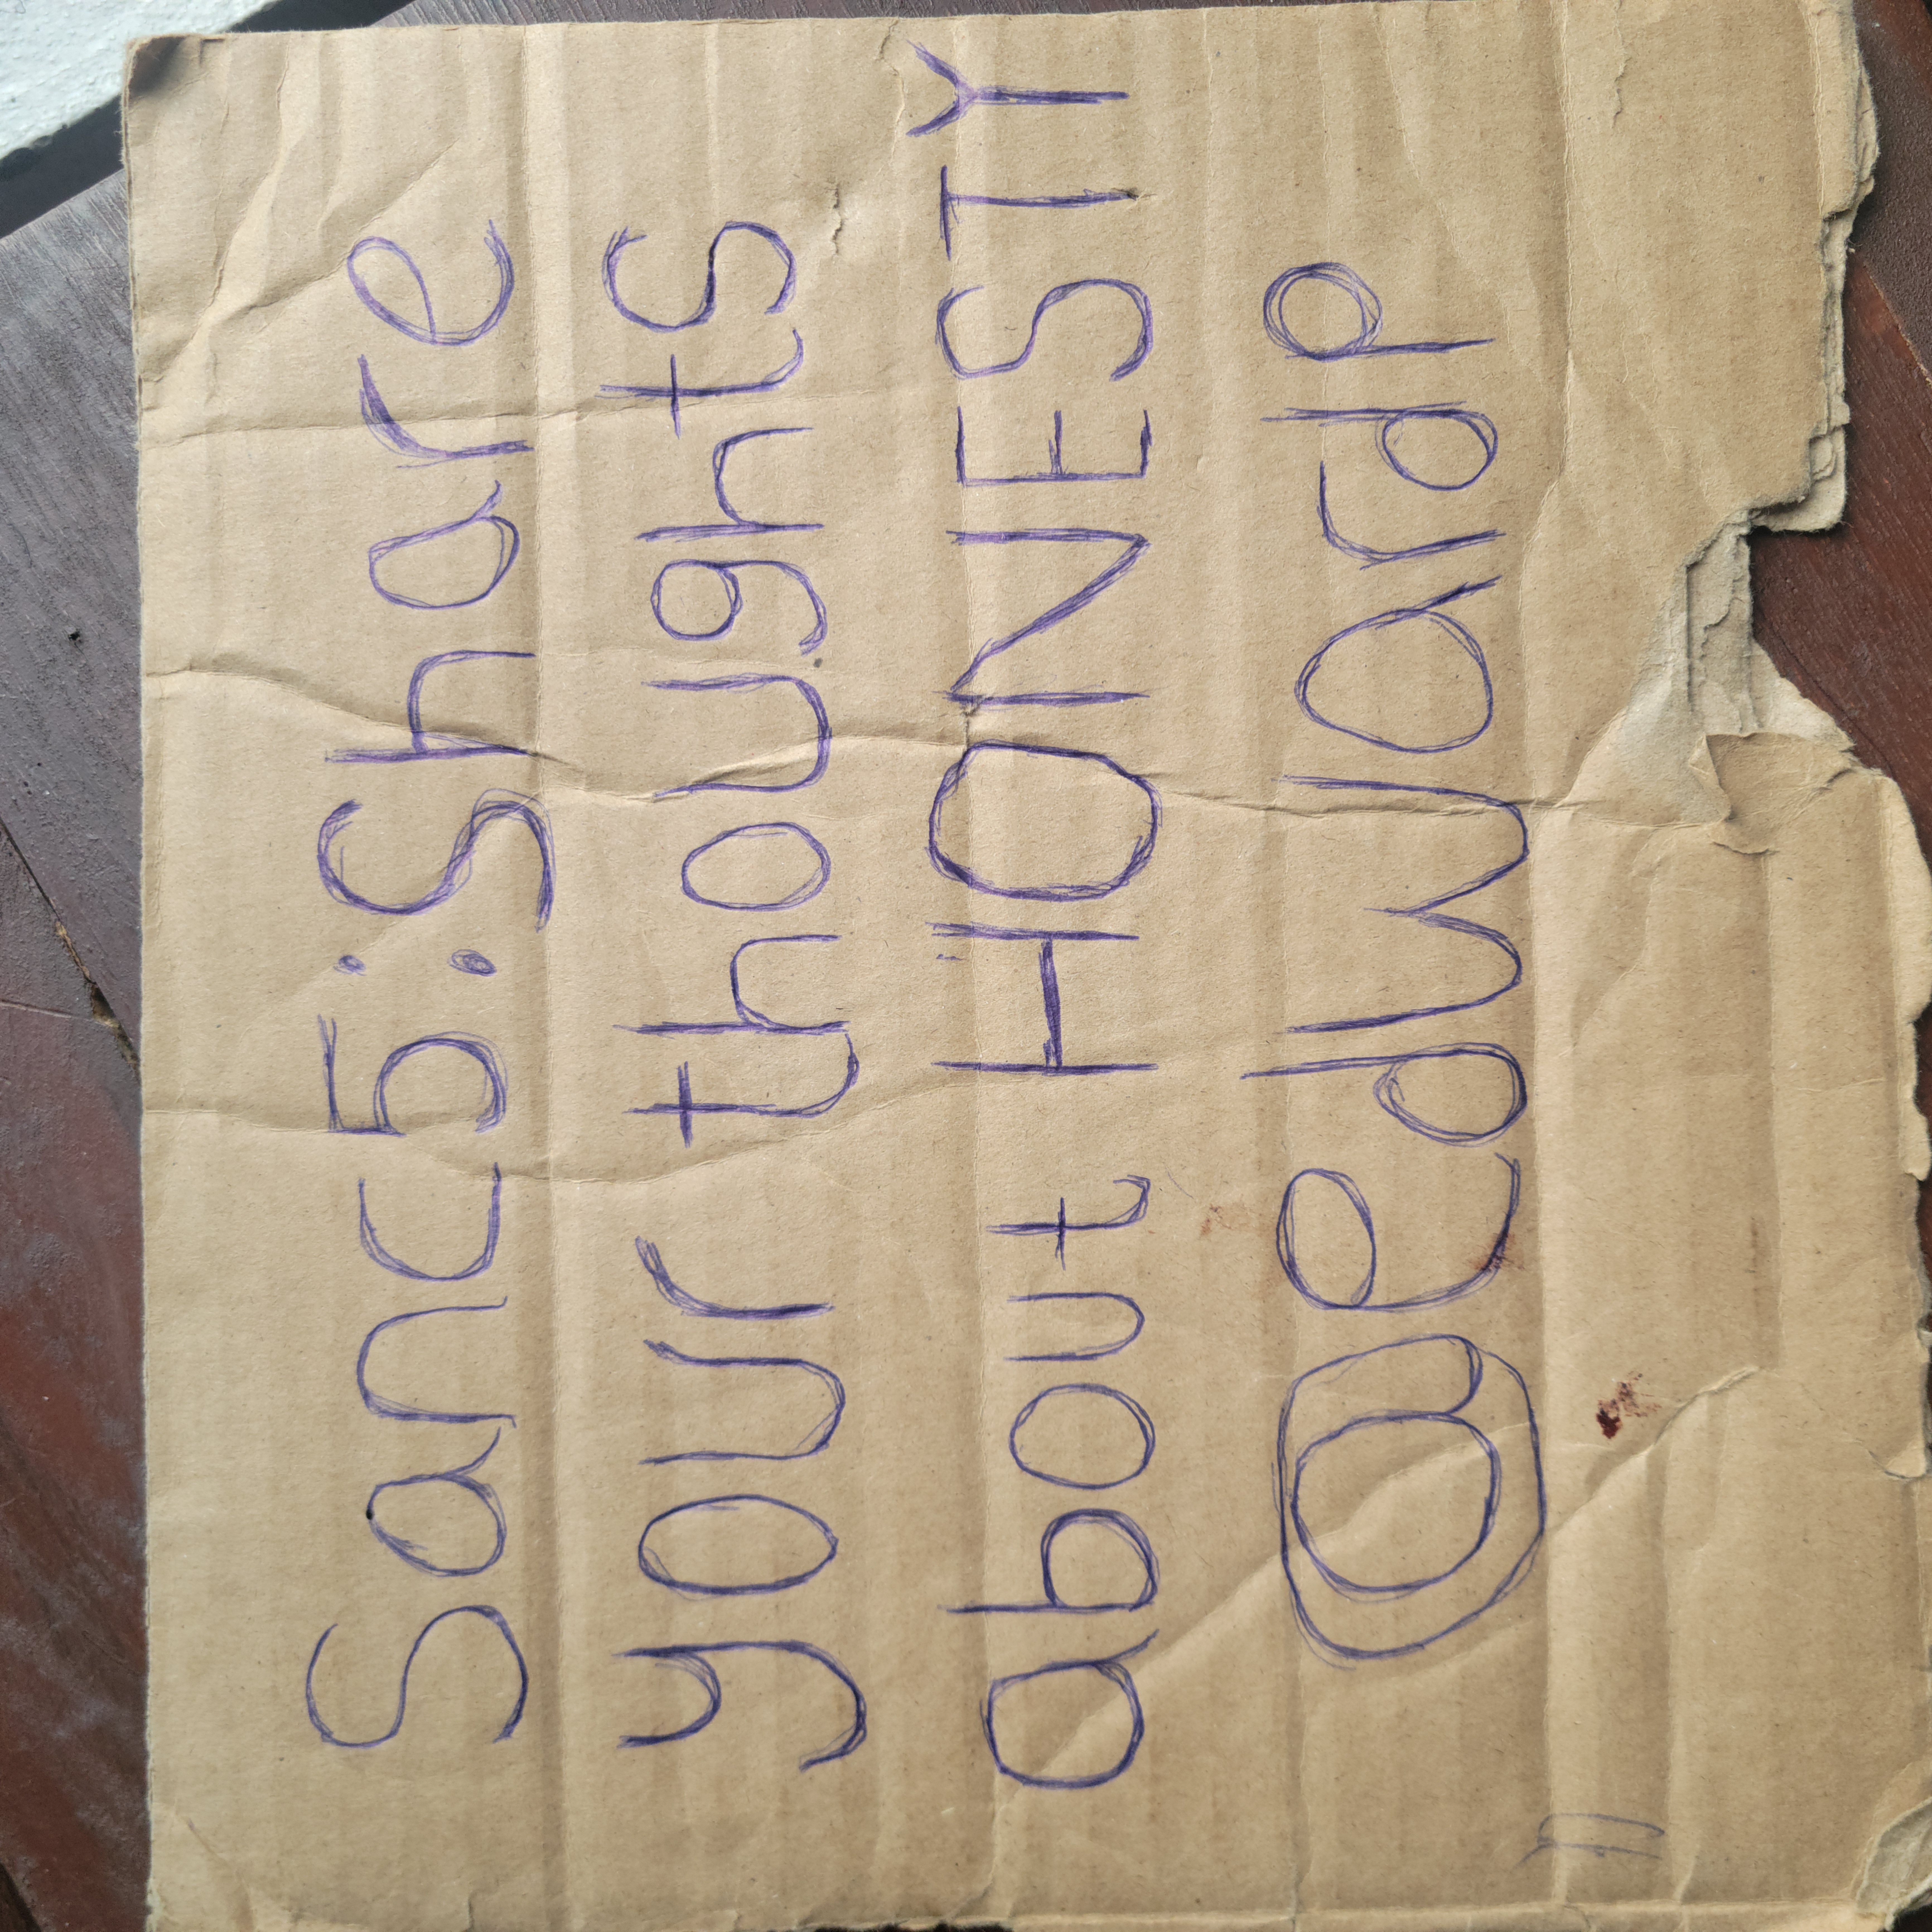 Sanc5: Share
your thoughts
about HONESTY
@edwardp